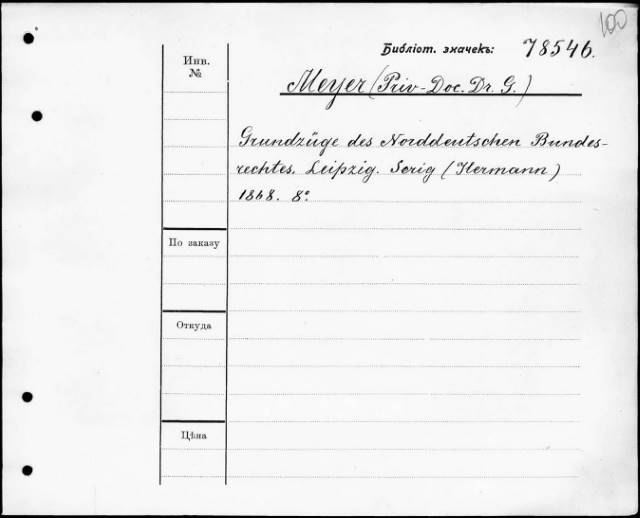 100
Библіот. значекъ: 78546.
Инв.
№
Meyer (Priv-Doc. Dr. G.)
Grundzüge des Norddeutschen Bundes-
rechtes. Leipzig. Serig (Hermann)
1868. 8°
По заказу
Откуда
Цѣна